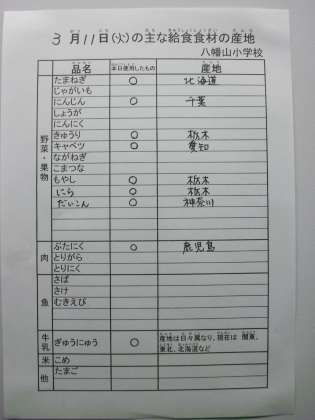 3月11日(火)の主な給食食材の産地
八幡山小学校
品名 本日使用したもの 産地
野菜・果物
たまねぎ ○ 北海道
じゃがいも
にんじん ○ 千葉
しょうが
にんにく
きゅうり ○ 栃木
キャベツ ○ 愛知
ながねぎ
こまつな
もやし ○ 栃木
にら ○ 栃木
だいこん ○ 神奈川
肉
ぶたにく ○ 鹿児島
とりがら
とりにく
魚
さば
さけ
むきえび
牛乳
ぎゅうにゅう ○ 産地は日々異なり、現在は 関東、
東北、北海道など
米 こめ
他 たまご